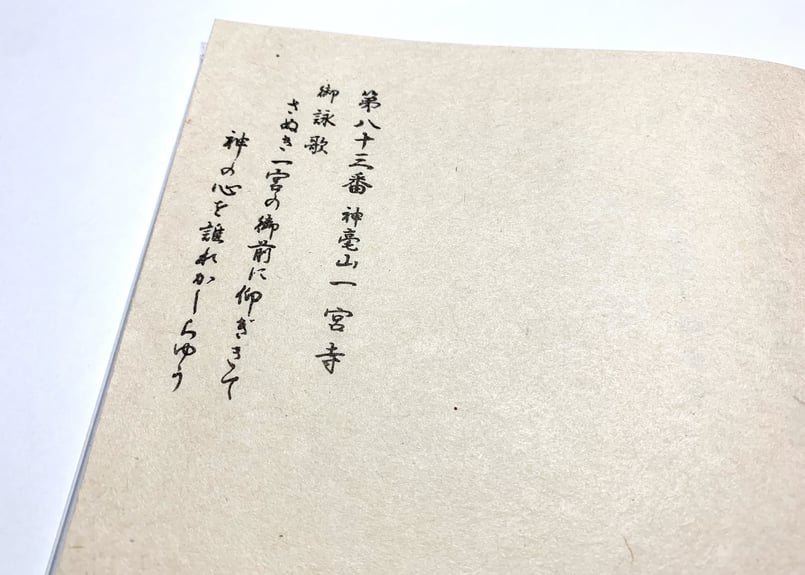 第八十三番 神毫山一宮寺
御詠歌
さぬき一宮の御前に仰ぎきて
神の心を誰れかしらゆう